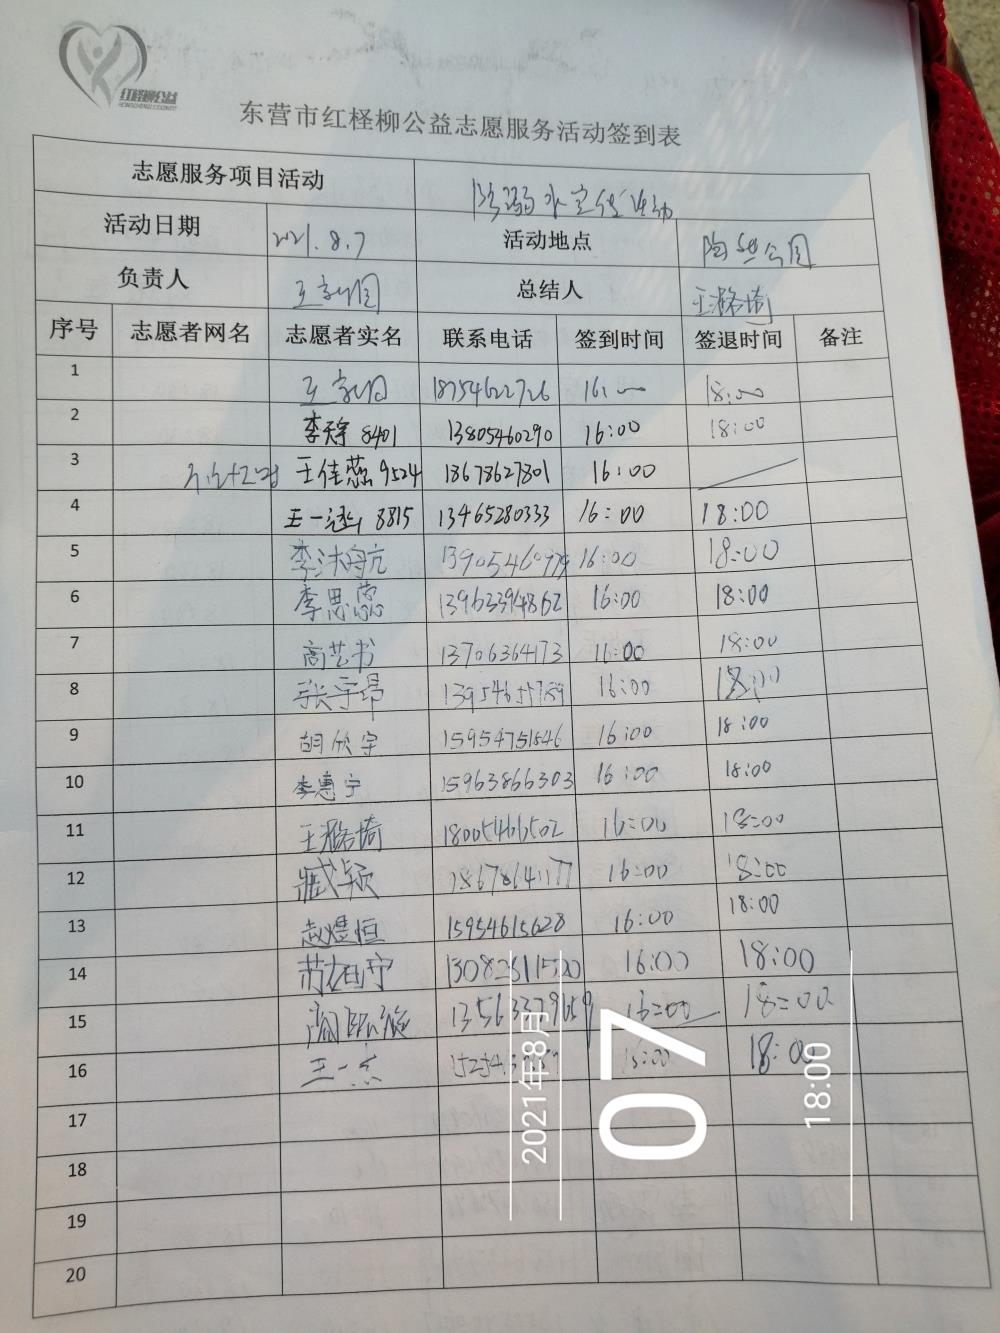 红柽柳公益
东营市红柽柳公益志愿服务活动签到表
志愿服务项目活动 防溺水宣传活动
活动日期 2021.8.7 活动地点
负责人 总结人 王潞琦
序号 志愿者网名 志愿者实名 联系电话 签到时间 签退时间 备注
1 18754622726 16:00 18:00
2 8401 13805460290 16:00 18:00
3 王佳蕊 9524 13678627801 16:00
4 王一 8815 13465280333 16:00 18:00
5 16:00 18:00
6 李思蕊 13963394862 16:00 18:00
7 商艺书 13706364173 16:00 18:00
8 张宇昂 16:00 18:00
9 胡欣宇 15954751846 16:00 18:00
10 李惠宁 15963866303 16:00 18:00
11 王潞琦 18005466502 16:00 18:00
12 臧颖 18678641177 16:00 18:00
13 赵煜恒 15954615628 16:00 18:00
14 16:00 18:00
15 13563379659 16:00 18:00
16 王一 18:00
17
18
19
20
2021年8月
07
18:00